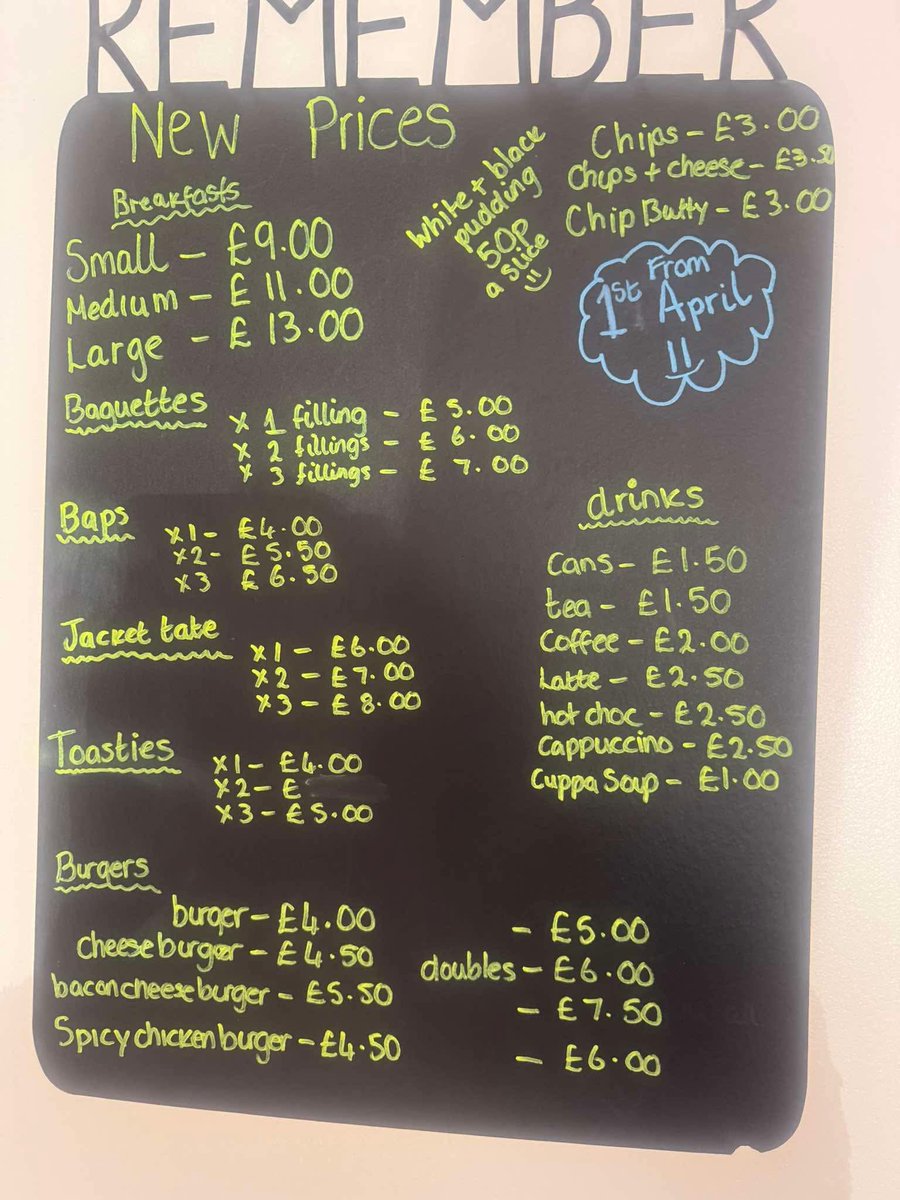 REMEMBER
New Prices
Breakfasts
Small - £9.00
Medium - £11.00
Large - £13.00
White + black
pudding
50p
a slice
Chips - £3.00
Chips + cheese - £3.50
Chip Butty - £3.00
From
1st April
Baguettes
x 1 filling - £5.00
x 2 fillings - £6.00
x 3 fillings - £7.00
Baps
x1 - £4.00
x2 - £5.50
x3 £6.50
Jacket tate
x1 - £6.00
x2 - £7.00
x3 - £8.00
Toasties
x1 - £4.00
x2 - £
x3 - £5.00
drinks
Cans - £1.50
tea - £1.50
Coffee - £2.00
Latte - £2.50
hot choc - £2.50
Cappuccino - £2.50
Cuppa Soup - £1.00
Burgers
burger - £4.00 - £5.00
cheese burger - £4.50 doubles - £6.00
bacon cheese burger - £5.50 - £7.50
Spicy chicken burger - £4.50 - £6.00